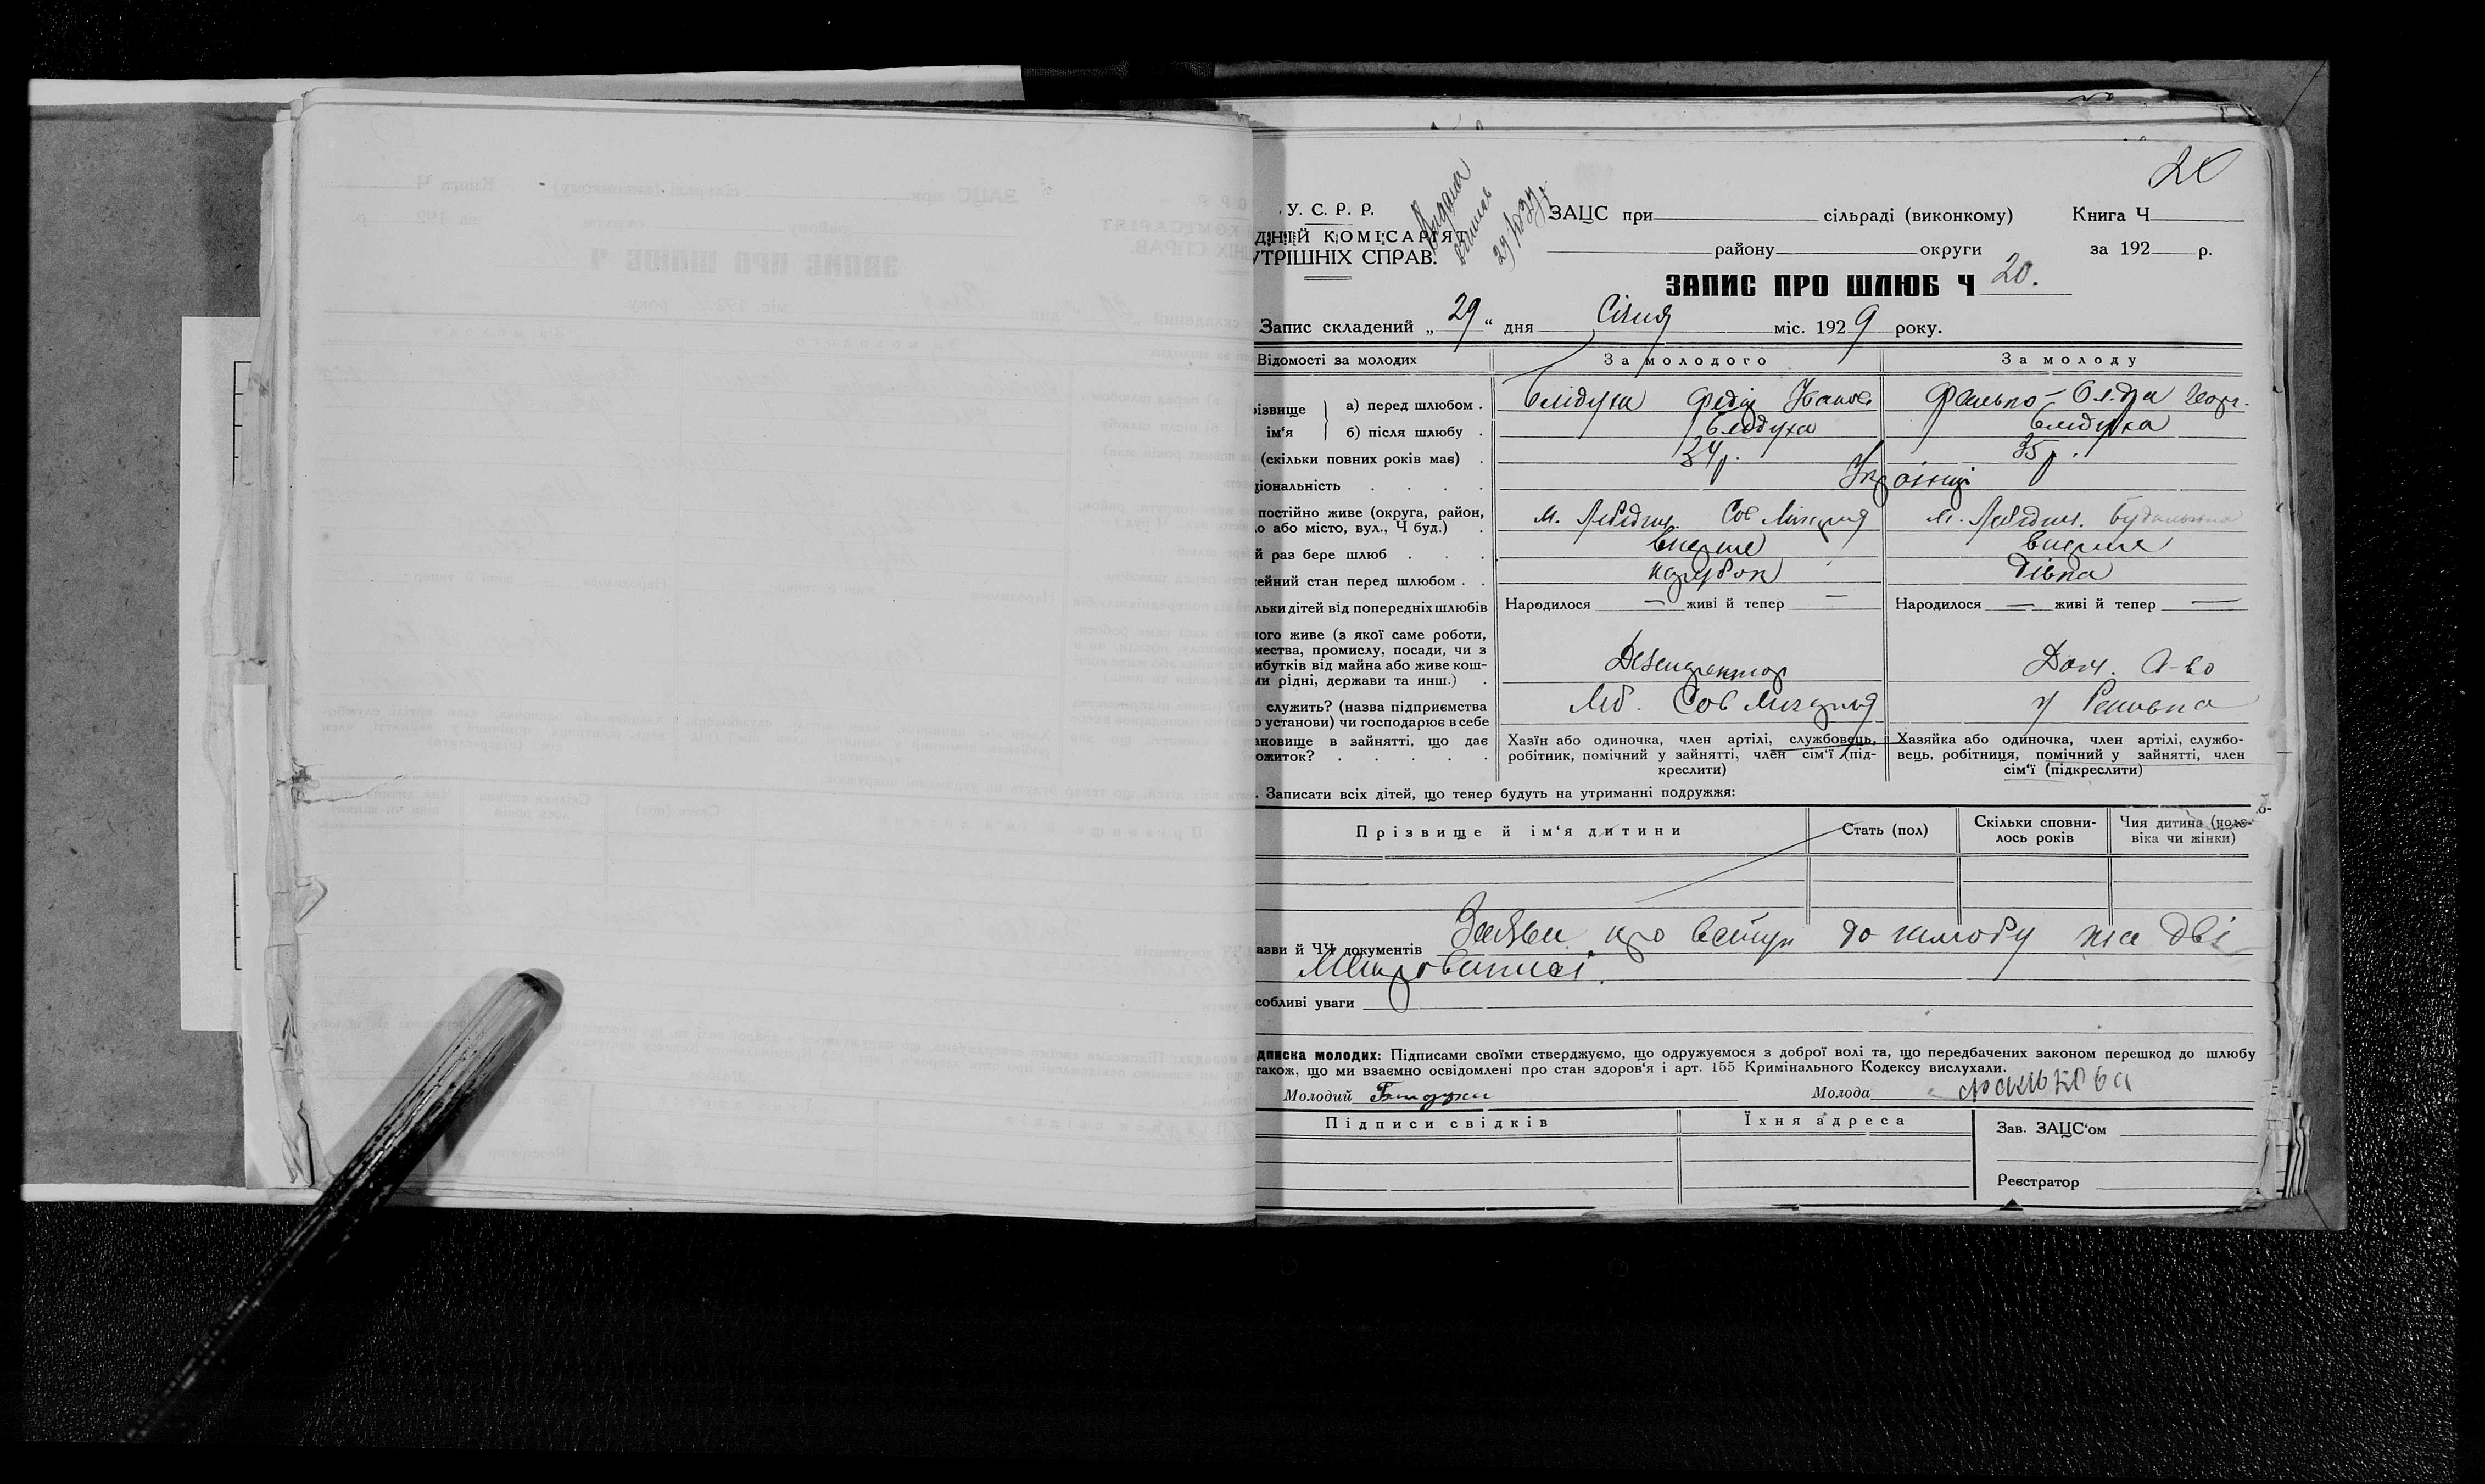 20
У. С. Р. Р.
ДНІЙ КОМІСАРІЯТ
УТРІШНІХ СПРАВ.
ЗАЦС при сільраді (виконкому) Книга Ч
району округи за 192 р.
ЗАПИС ПРО ШЛЮБ Ч 20.
Запис складений „29“ дня Січня міс. 1929 року.
Відомості за молодих За молодого За молоду
ізвище а) перед шлюбом . Блідуха Федір Іванов Фалько-
ім'я б) після шлюбу . Блідуха Блідуха
(скільки повних років має) . 34 р. 35 р.
ціональність . . . . Українці
постійно живе (округа, район, м. Лебедин. Сов Лікарня м. Лебедин.
о або місто, вул., Ч буд.) .
й раз бере шлюб . . . вперше вперше
ейний стан перед шлюбом . . парубок дівка
льки дітей від попередніх шлюбів Народилося — живі й тепер — Народилося — живі й тепер —
ого живе (з якої саме роботи,
мества, промислу, посади, чи з
ибутків від майна або живе кош- Дезенфектор Дом. Г-во
ми рідні, держави та инш.) .
служить? (назва підприємства Леб. Сов Лікарня
о установи) чи господарює в себе
ановище в зайнятті, що дає Хазїн або одиночка, член артілі, службовець, Хазяйка або одиночка, член артілі, службо-
ожиток? . . . . . робітник, помічний у зайнятті, член сім'ї (під- вець, робітниця, помічний у зайнятті, член
креслити) сім'ї (підкреслити)
. Записати всіх дітей, що тепер будуть на утриманні подружжя:
Прізвище й ім'я дитини Стать (пол) Скільки сповни- Чия дитина (чоло-
лось років віка чи жінки)
азви й ЧЧ документів Заяви про вступ до шлюбу та дві
собливі уваги
дписка молодих: Підписами своїми стверджуємо, що одружуємося з доброї волі та, що передбачених законом перешкод до шлюбу
також, що ми взаємно освідомлені про стан здоров'я і арт. 155 Кримінального Кодексу вислухали.
Молодий Блидуха Молода Фалькова
Підписи свідків Їхня адреса Зав. ЗАЦС'ом
Реєстратор